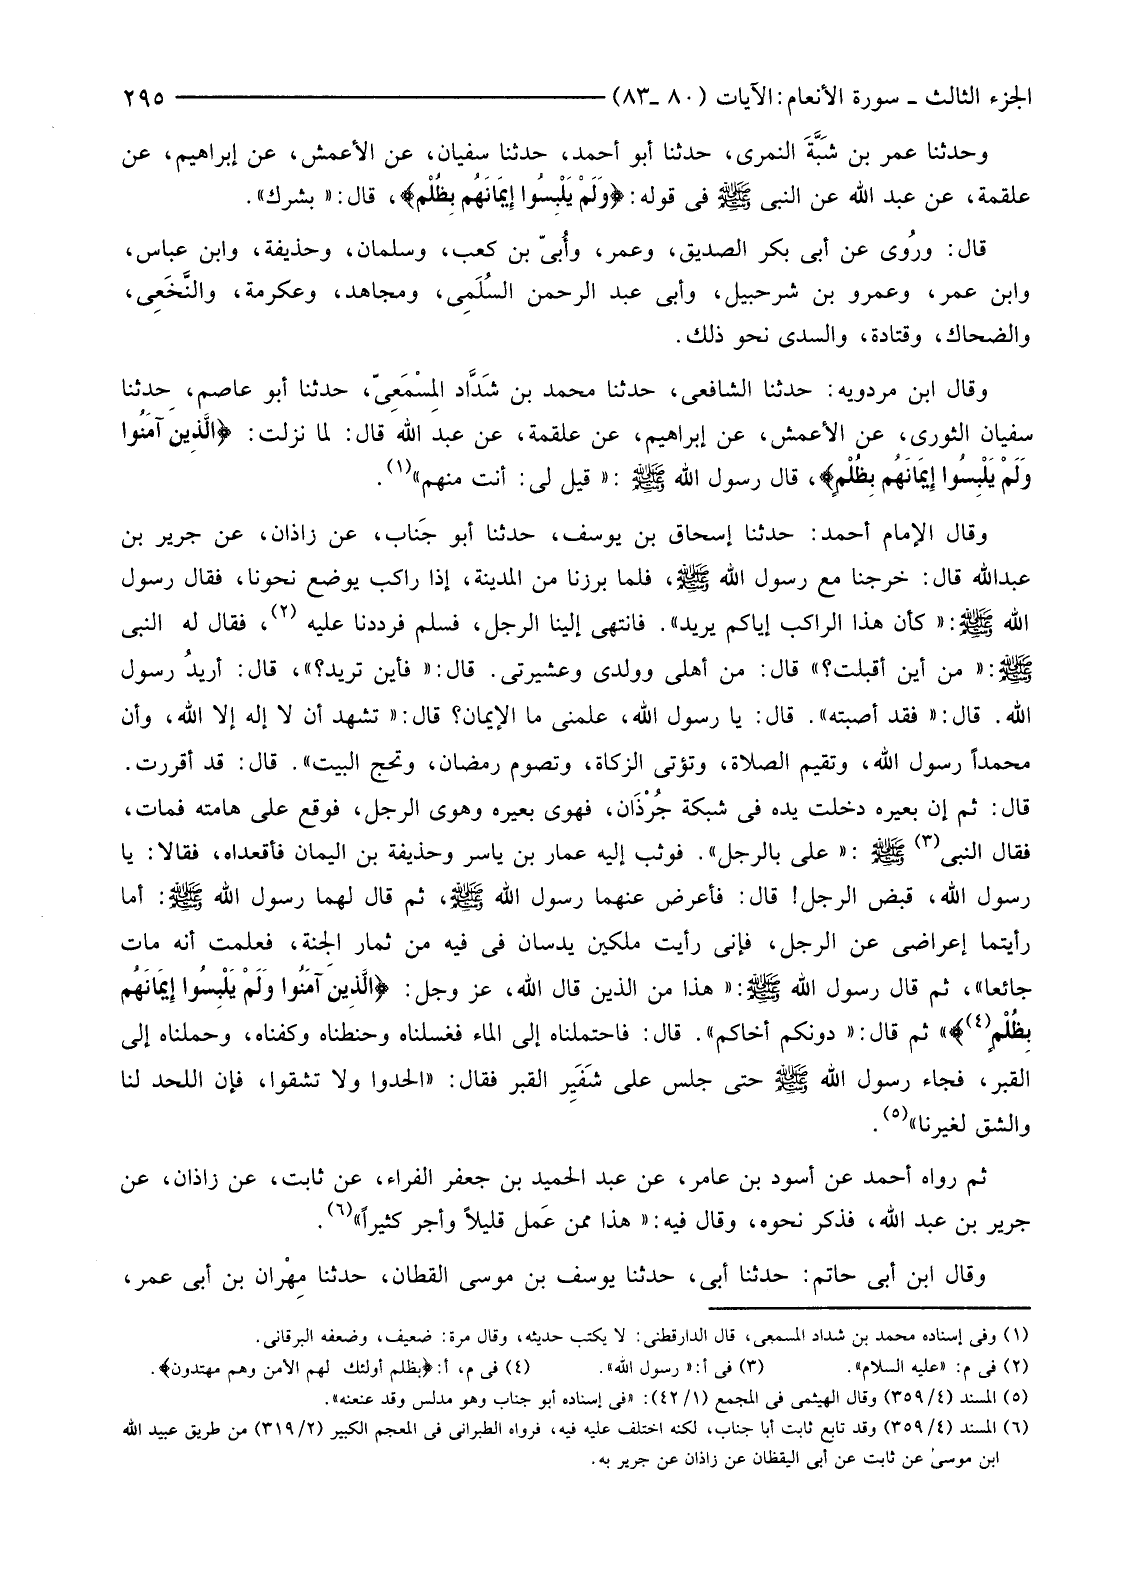 الجزء الثالث ـ سورة الأنعام: الآيات (٨٠ ـ٨٣) ٢٩٥
وحدثنا عمر بن شَبَّةَ النمرى، حدثنا أبو أحمد، حدثنا سفيان، عن الأعمش، عن إبراهيم، عن
علقمة، عن عبد الله عن النبى ﷺ فى قوله: ﴿وَلَمْ يَلْبِسُوا إِيمَانَهُم بِظُلْم﴾، قال: « بشرك».
قال: ورُوى عن أبى بكر الصديق، وعمر، وأُبىّ بن كعب، وسلمان، وحذيفة، وابن عباس،
وابن عمر، وعمرو بن شرحبيل، وأبى عبد الرحمن السُلَمِى، ومجاهد، وعكرمة، والنَّخَعِى،
والضحاك، وقتادة، والسدى نحو ذلك.
وقال ابن مردويه: حدثنا الشافعى، حدثنا محمد بن شَدَّاد المِسْمَعِىّ، حدثنا أبو عاصم، حدثنا
سفيان الثورى، عن الأعمش، عن إبراهيم، عن علقمة، عن عبد الله قال: لما نزلت: ﴿الَّذِينَ آمَنُوا
وَلَمْ يَلْبِسُوا إِيمَانَهُم بِظُلْمٍ﴾، قال رسول الله ﷺ :« قيل لى: أنت منهم»(١).
وقال الإمام أحمد: حدثنا إسحاق بن يوسف، حدثنا أبو جَناب، عن زاذان، عن جرير بن
عبدالله قال: خرجنا مع رسول الله ﷺ، فلما برزنا من المدينة، إذا راكب يوضع نحونا، فقال رسول
الله ﷺ:« كأن هذا الراكب إياكم يريد». فانتهى إلينا الرجل، فسلم فرددنا عليه (٢)، فقال له النبى
ﷺ:« من أين أقبلت؟» قال: من أهلى وولدى وعشيرتى. قال:« فأين تريد؟»، قال: أريدُ رسول
الله. قال:« فقد أصبته». قال: يا رسول الله، علمنى ما الإيمان؟ قال:« تشهد أن لا إله إلا الله، وأن
محمداً رسول الله، وتقيم الصلاة، وتؤتى الزكاة، وتصوم رمضان، وتحج البيت». قال: قد أقررت.
قال: ثم إن بعيره دخلت يده فى شبكة جُرْذَان، فهوى بعيره وهوى الرجل، فوقع على هامته فمات،
فقال النبى(٣) ﷺ :« على بالرجل». فوثب إليه عمار بن ياسر وحذيفة بن اليمان فأقعداه، فقالا: يا
رسول الله، قبض الرجل! قال: فأعرض عنهما رسول الله ﷺ، ثم قال لهما رسول الله ﷺ: أما
رأيتما إعراضى عن الرجل، فإنى رأيت ملكين يدسان فى فيه من ثمار الجنة، فعلمت أنه مات
جائعا»، ثم قال رسول الله ﷺ:« هذا من الذين قال الله، عز وجل: ﴿الَّذِينَ آمَنُوا وَلَمْ يَلْبِسُوا إِيمَانَهُم
بِظُلْمٍ(٤)﴾» ثم قال:« دونكم أخاكم». قال: فاحتملناه إلى الماء فغسلناه وحنطناه وكفناه، وحملناه إلى
القبر، فجاء رسول الله ﷺ حتى جلس على شَفَير القبر فقال: «الحدوا ولا تشقوا، فإن اللحد لنا
والشق لغيرنا»(٥).
ثم رواه أحمد عن أسود بن عامر، عن عبد الحميد بن جعفر الفراء، عن ثابت، عن زاذان، عن
جرير بن عبد الله، فذكر نحوه، وقال فيه:« هذا ممن عَمل قليلاً وأجر كثيراً»(٦).
وقال ابن أبى حاتم: حدثنا أبى، حدثنا يوسف بن موسى القطان، حدثنا مِهْران بن أبى عمر،
(١) وفى إسناده محمد بن شداد المسمعى، قال الدارقطنى: لا يكتب حديثه، وقال مرة: ضعيف، وضعفه البرقانى.
(٢) فى م: «عليه السلام». (٣) فى أ:« رسول الله». (٤) فى م، أ: ﴿بظلم أولئك لهم الأمن وهم مهتدون﴾.
(٥) المسند (٣٥٩/٤) وقال الهيثمى فى المجمع (٤٢/١): «فى إسناده أبو جناب وهو مدلس وقد عنعنه».
(٦) المسند (٣٥٩/٤) وقد تابع ثابت أبا جناب، لكنه اختلف عليه فيه، فرواه الطبرانى فى المعجم الكبير (٣١٩/٢) من طريق عبيد الله
ابن موسى عن ثابت عن أبى اليقظان عن زاذان عن جرير به.